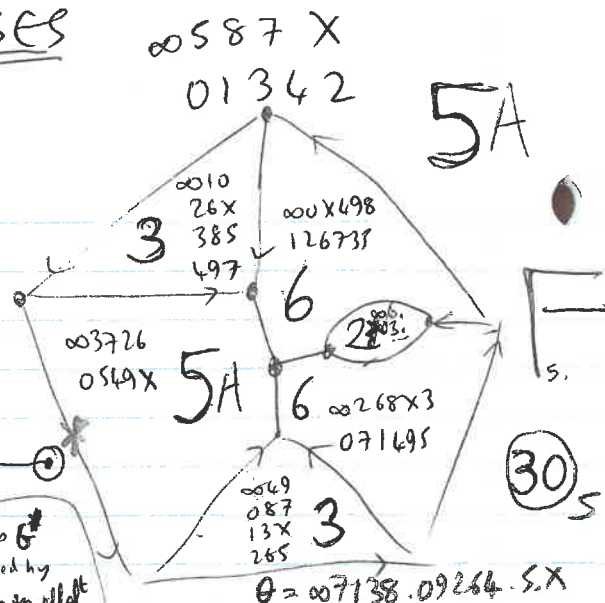 ∞587 X
01342
5A
3
∞10
26X
385
497
∞0X498
126735
6
∞3726
0549X
5A
2
6
∞268X3
071495
5.
30
5
∞49
087
13X
265
3
θ = ∞7138.09264.5.X